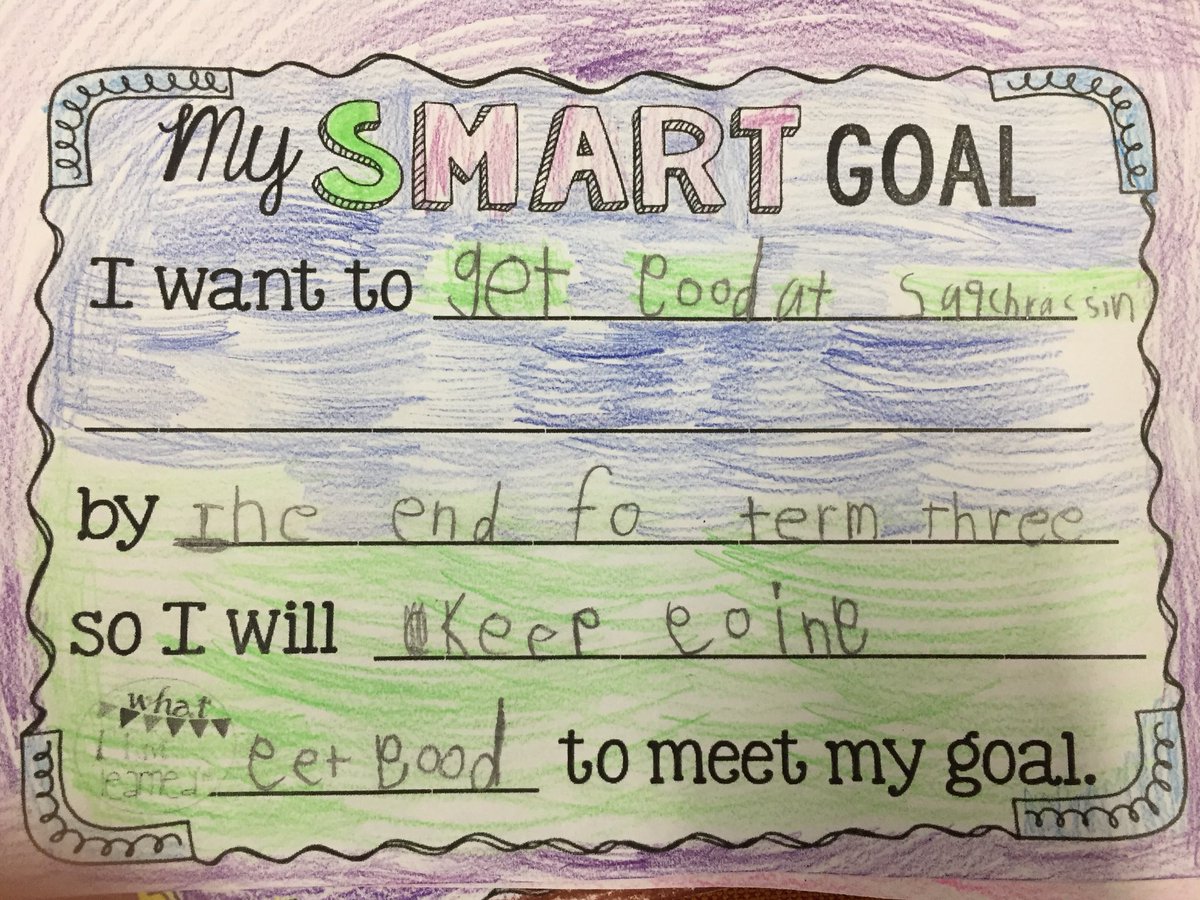 My SMART GOAL
I want to get eood at Sqqchracsin
by The end fo term three
so I will Keep eoine
what
I im
learned
eet eood to meet my goal.